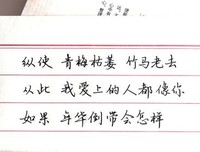 纵使 青梅枯萎 竹马老去
从此 我爱上的人都像你
如果 年华倒带会怎样